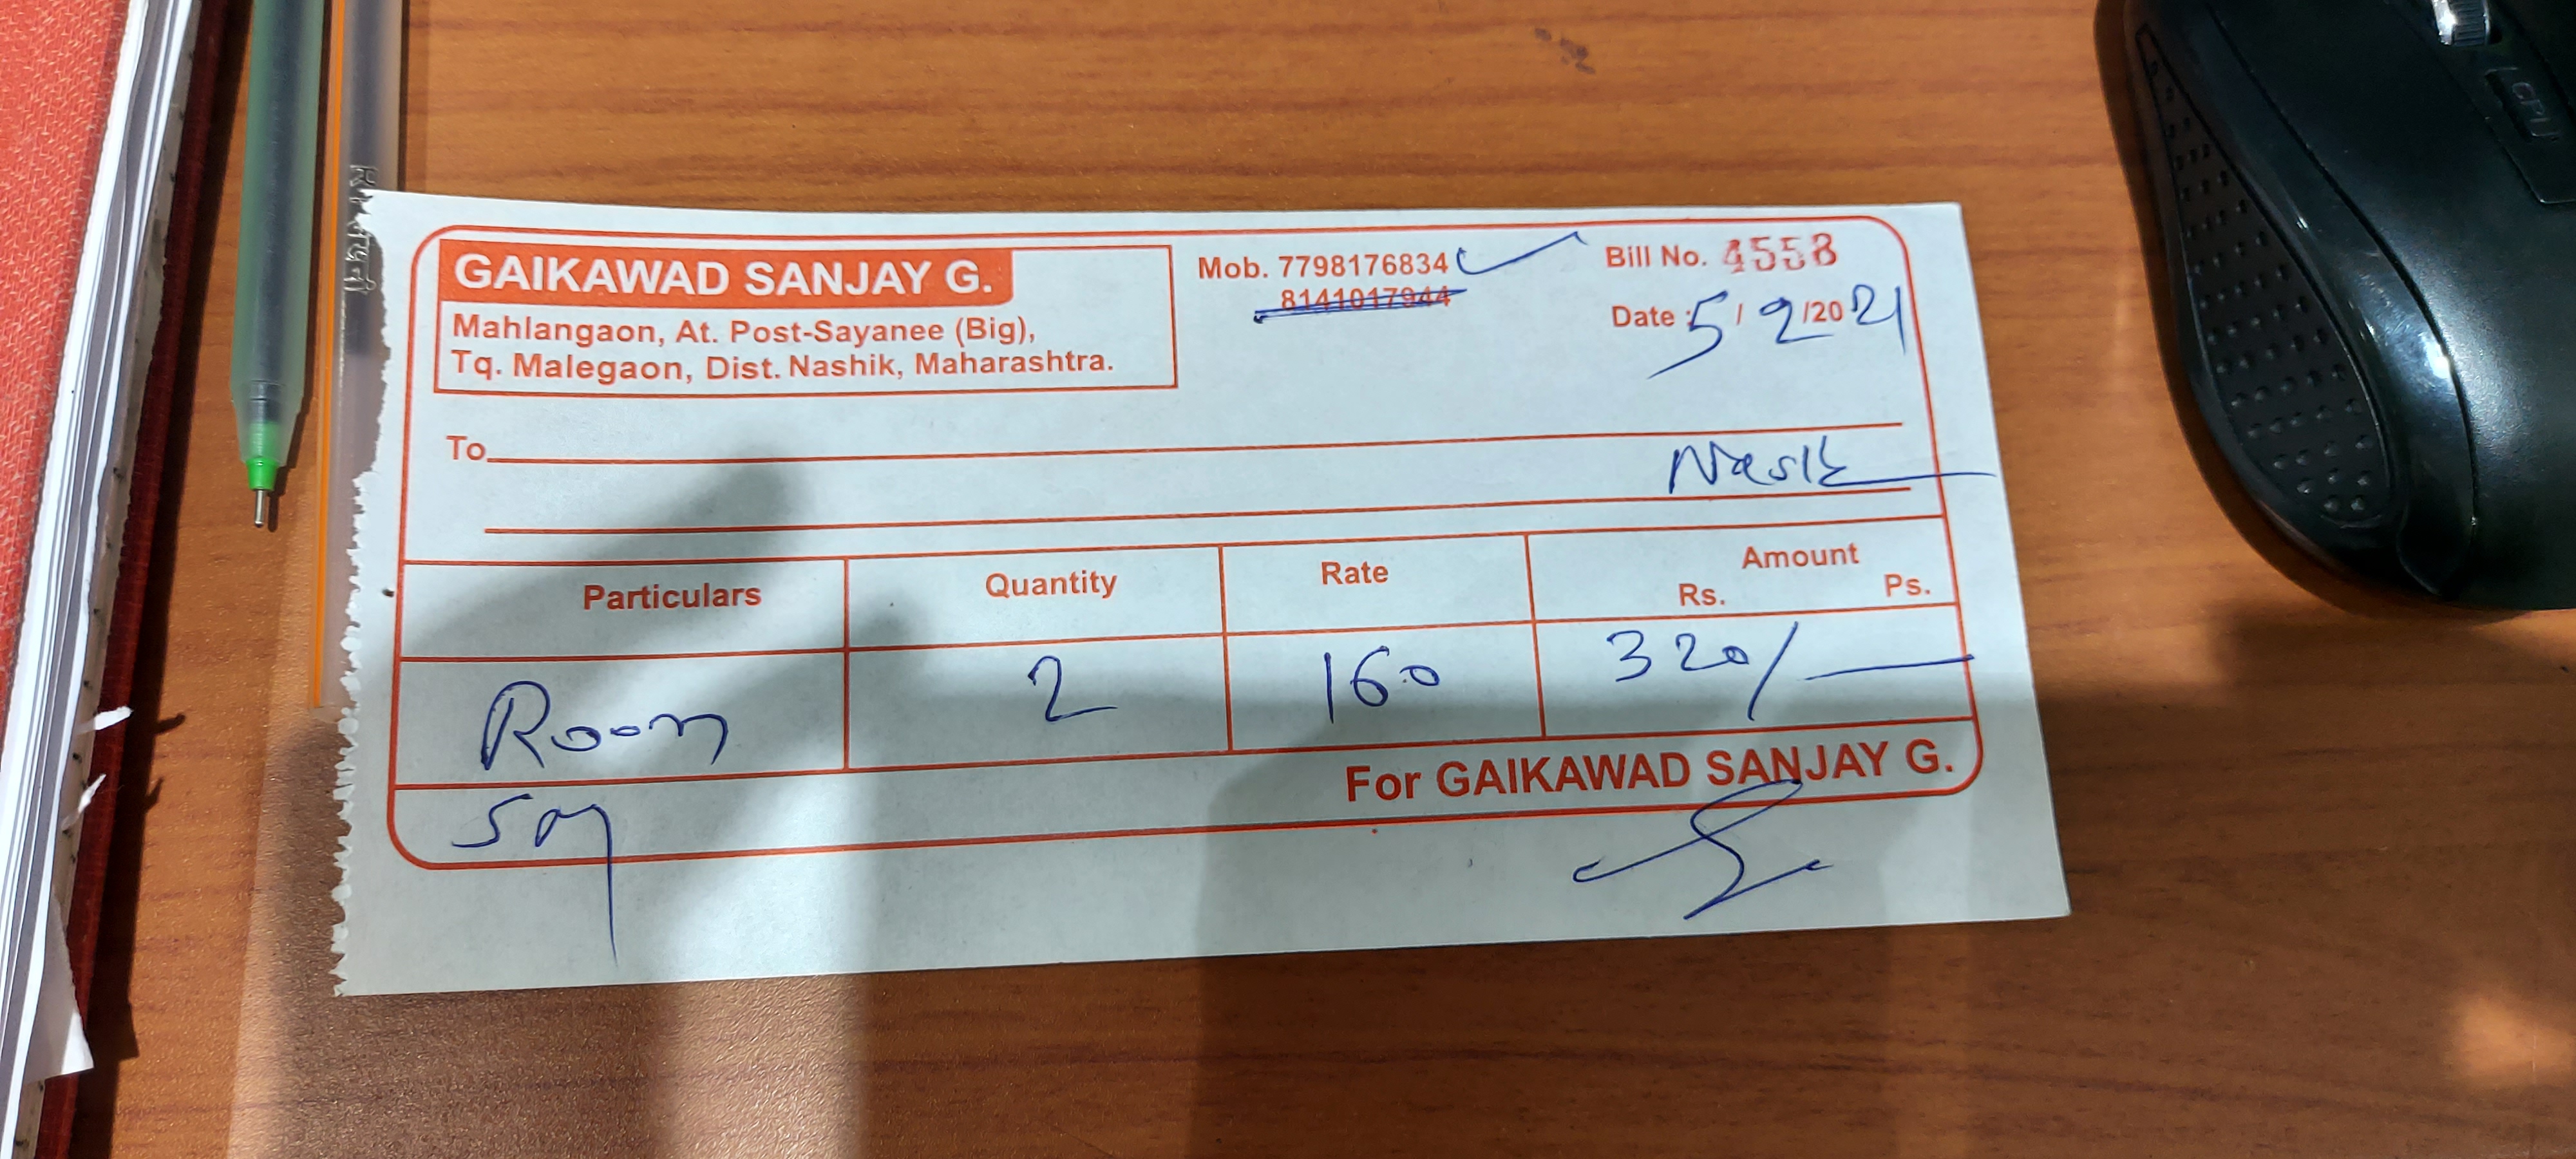 GAIKAWAD SANJAY G.
Mahlangaon, At. Post-Sayanee (Big),
Tq. Malegaon, Dist. Nashik, Maharashtra.
Mob. 7798176834
8141017944
Bill No. 4558
Date : 5/9/2021
To,
Nasik
Particulars Quantity Rate Amount
Rs. Ps.
Room 2 160 320/
For GAIKAWAD SANJAY G.